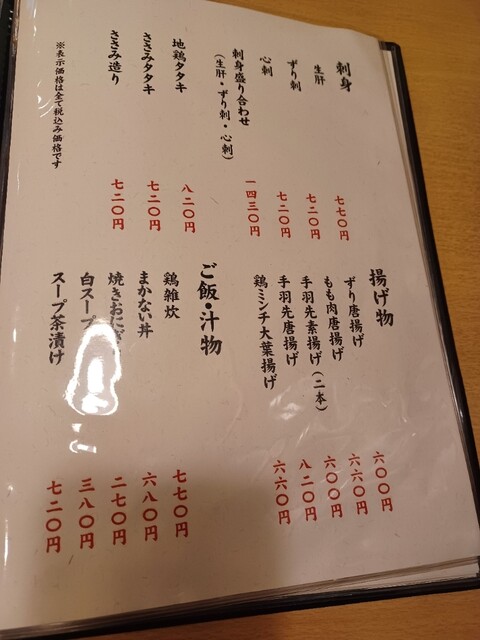 刺身
生肝 七七〇円
ずり刺 七二〇円
心刺 七二〇円
刺身盛り合わせ 一四三〇円
(生肝・ずり刺・心刺)
地鶏タタキ 八二〇円
ささみタタキ 七二〇円
ささみ造り 七二〇円
※表示価格は全て税込み価格です
揚げ物
ずり唐揚げ 六〇〇円
もも肉唐揚げ 六六〇円
手羽先素揚げ(二本) 六〇〇円
手羽先唐揚げ 八二〇円
鶏ミンチ大葉揚げ 六六〇円
ご飯・汁物
鶏雑炊 七七〇円
まかない丼 六八〇円
焼きおにぎ 二七〇円
白スープ 三八〇円
スープ茶漬け 七二〇円